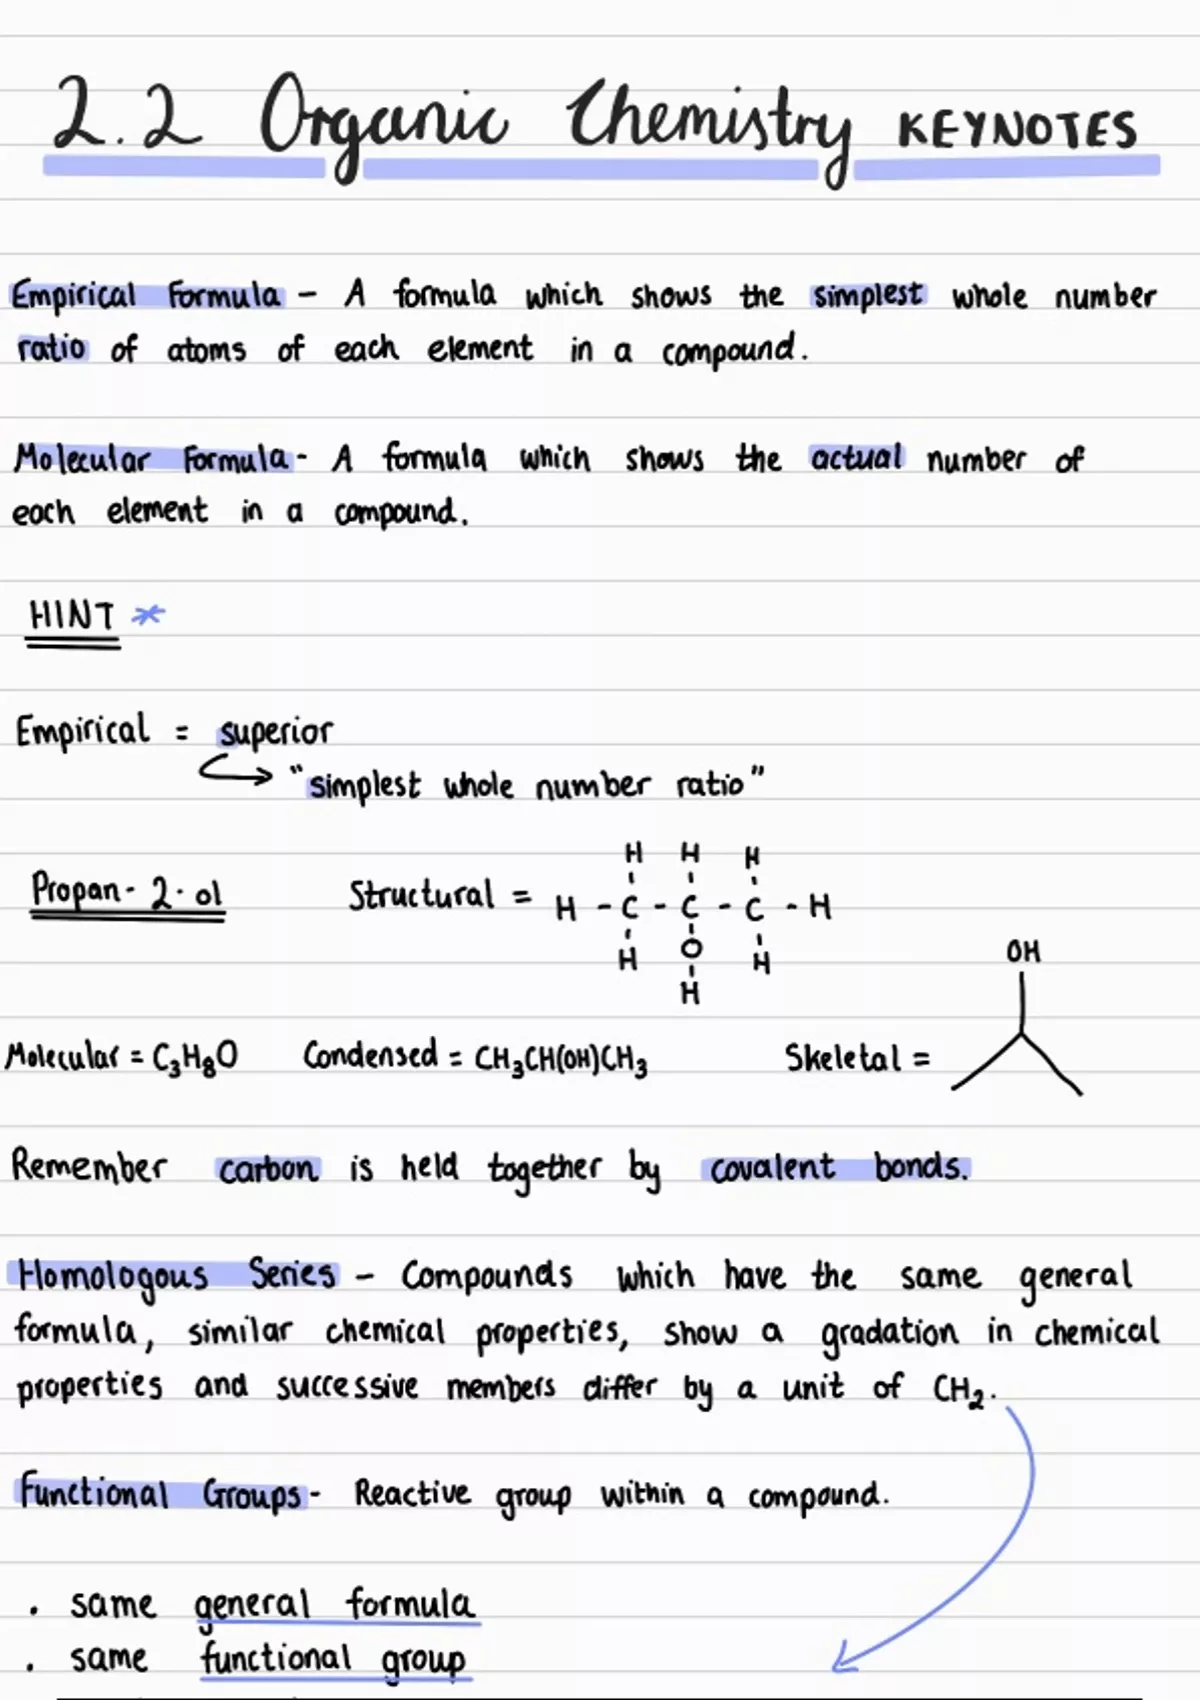 2.2 Organic Chemistry KEYNOTES
Empirical Formula - A formula which shows the simplest whole number
ratio of atoms of each element in a compound.
Molecular Formula - A formula which shows the actual number of
each element in a compound.
HINT *
Empirical = superior
"simplest whole number ratio"
H H H
Propan-2-ol Structural = H - C - C - C - H
H O H
H
OH
Molecular = C₃H₈O Condensed = CH₃CH(OH)CH₃ Skeletal =
Remember carbon is held together by covalent bonds.
Homologous Series - Compounds which have the same general
formula, similar chemical properties, show a gradation in chemical
properties and successive members differ by a unit of CH₂.
Functional Groups - Reactive group within a compound.
• same general formula
• same functional group